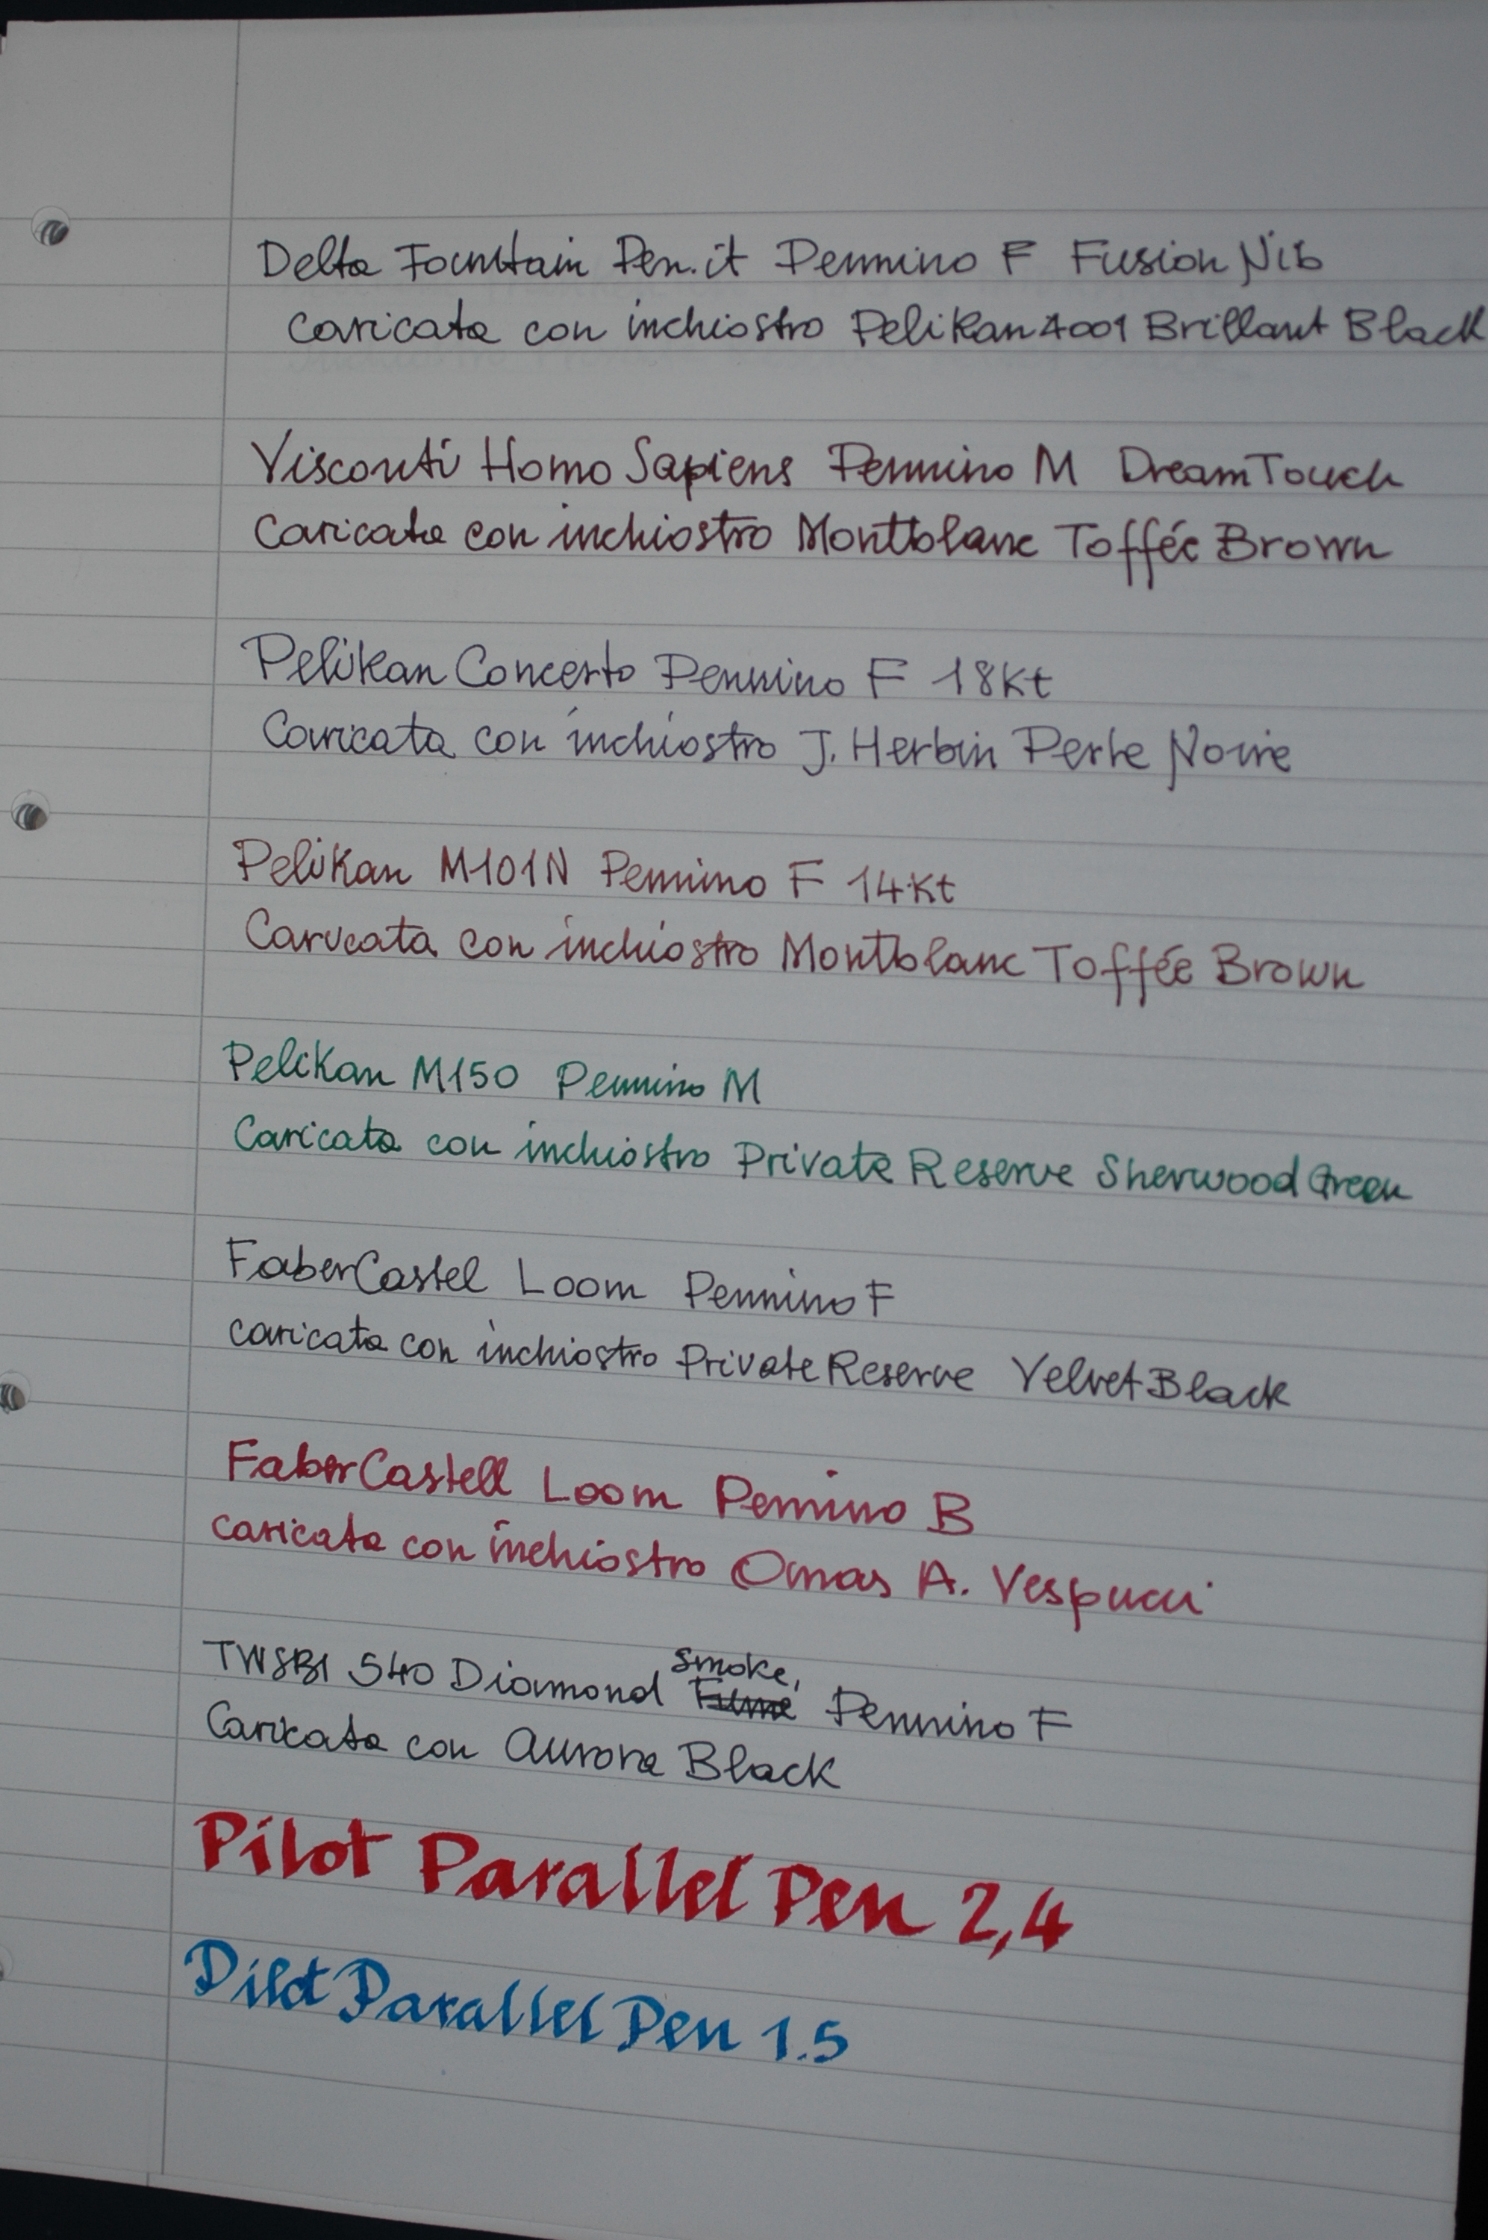 Delta Fountain Pen.it Pennino F Fusion Nib
caricata con inchiostro Pelikan 4001 Brillant Black
Visconti Homo Sapiens Pennino M DreamTouch
Caricata con inchiostro Montblanc Tofféе Brown
Pelikan Concerto Pennino F 18Kt
Caricata con inchiostro J. Herbin Perle Noire
Pelikan M101N Pennino F 14Kt
Caricata con inchiostro Montblanc Toffée Brown
Pelikan M150 Pennino M
Caricata con inchiostro Private Reserve Sherwood Green
FaberCastel Loom Pennino F
caricata con inchiostro Private Reserve Velvet Black
FaberCastell Loom Pennino B
caricata con inchiostro Omas A. Vespucci
TWSBI 540 Diamond Smoke, Pennino F
Caricata con Aurora Black
Pilot Parallel Pen 2,4
Pilot Parallel Pen 1.5